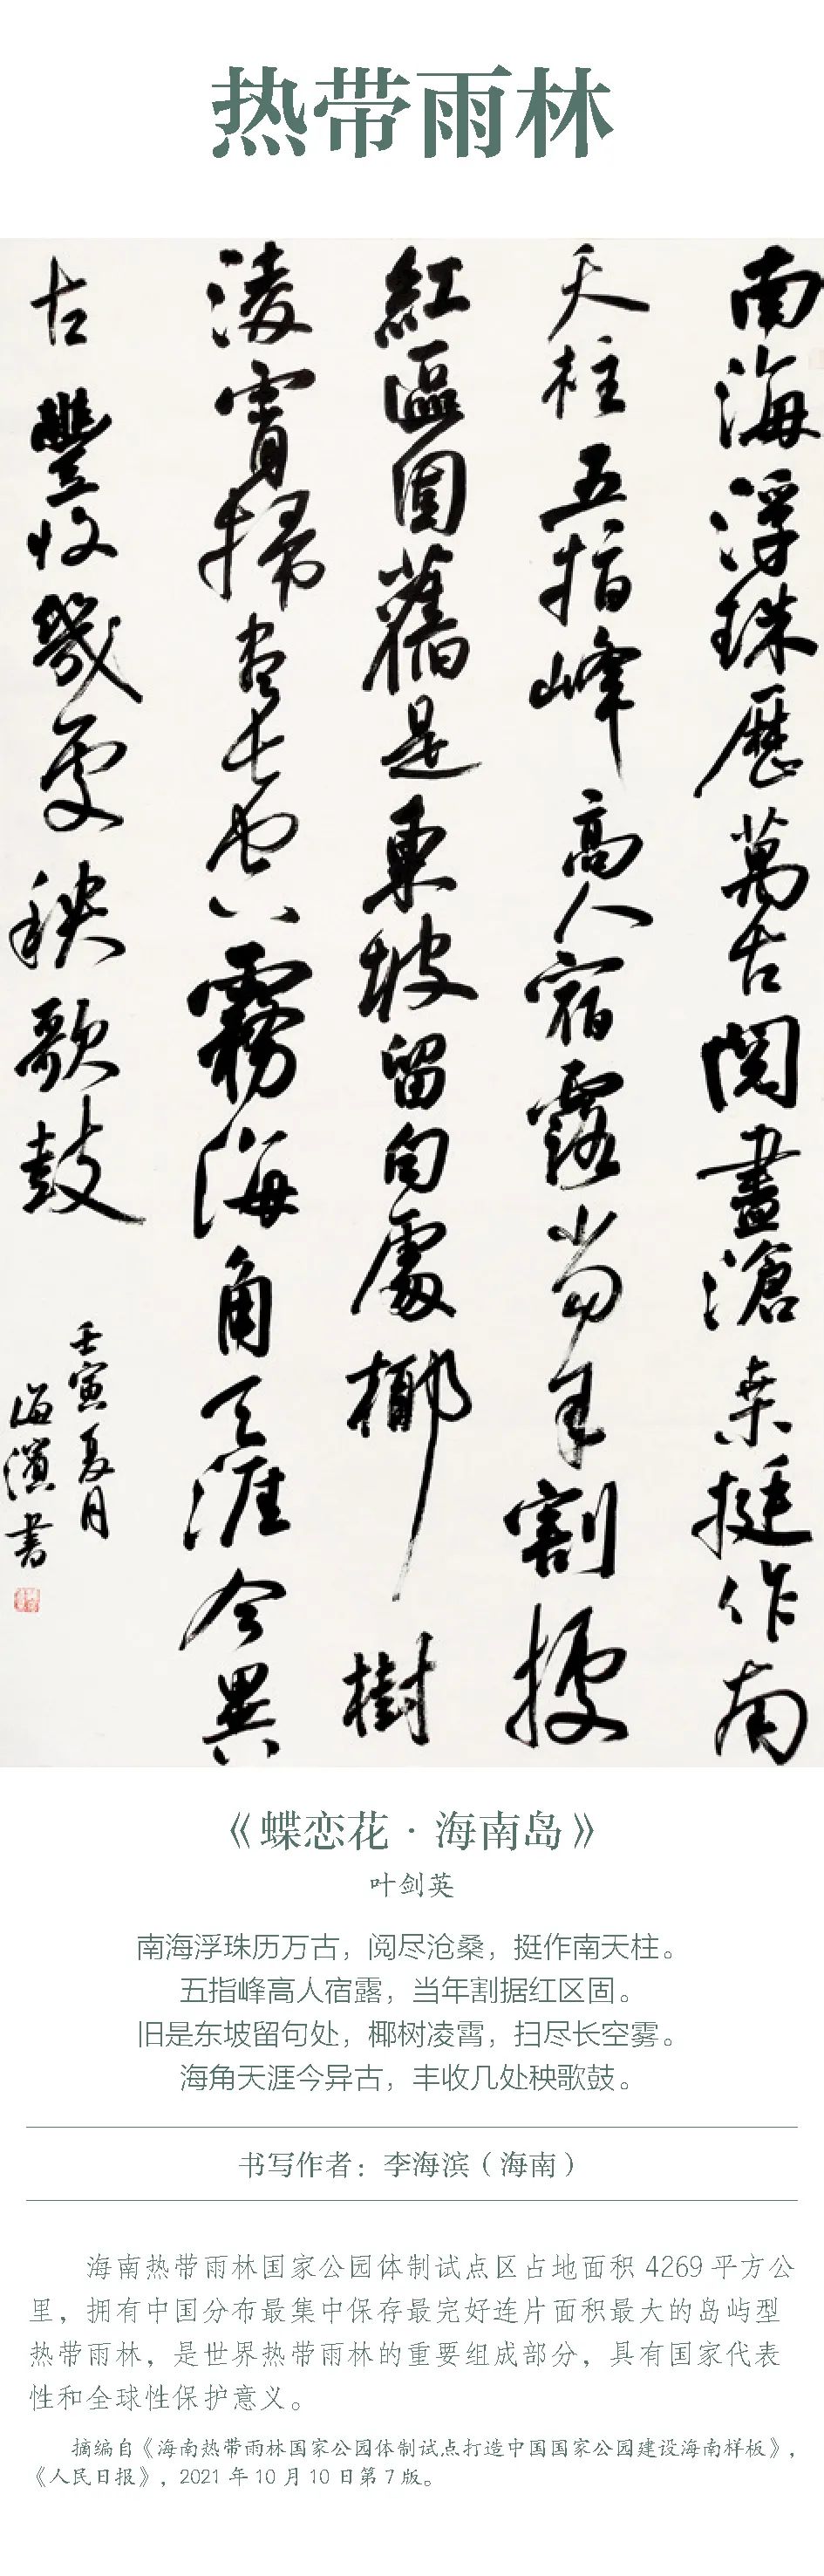 热带雨林
南海浮珠歷萬古閱盡滄桑挺作南
天柱五指峰高人宿露当年割據
紅區固舊是東坡留句處椰樹
淩霄掃尽长空霧海角天涯今異
古豐收幾處秧歌鼓
壬寅夏月
海濱书
《蝶恋花·海南岛》
叶剑英
南海浮珠历万古，阅尽沧桑，挺作南天柱。
五指峰高人宿露，当年割据红区固。
旧是东坡留句处，椰树凌霄，扫尽长空雾。
海角天涯今异古，丰收几处秧歌鼓。
书写作者：李海滨（海南）
海南热带雨林国家公园体制试点区占地面积 4269 平方公
里，拥有中国分布最集中保存最完好连片面积最大的岛屿型
热带雨林，是世界热带雨林的重要组成部分，具有国家代表
性和全球性保护意义。
摘编自《海南热带雨林国家公园体制试点打造中国国家公园建设海南样板》，
《人民日报》，2021 年 10 月 10 日第 7 版。